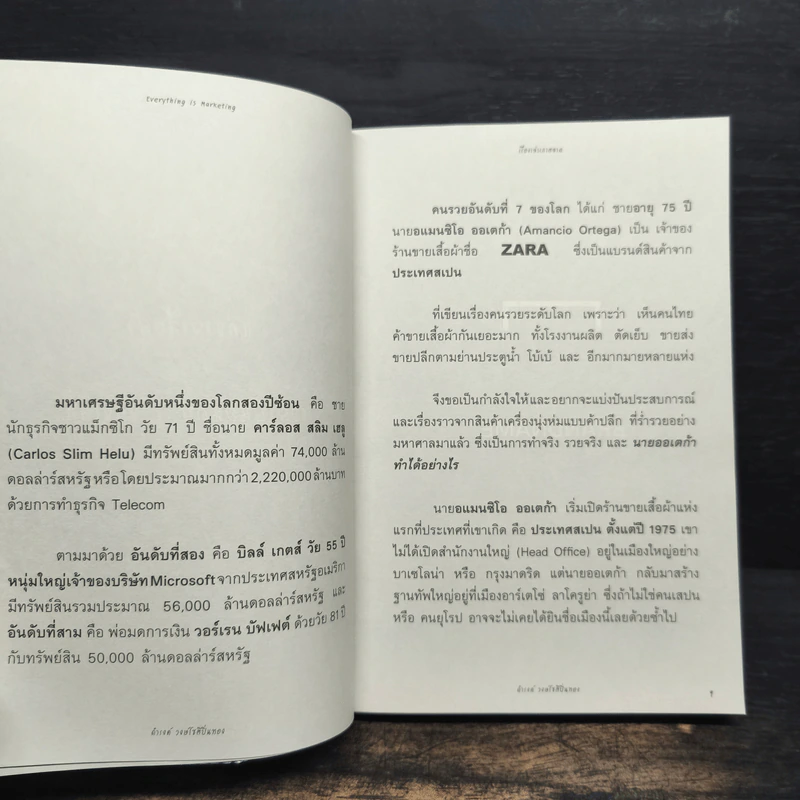 Everything is Marketing
มหาเศรษฐีอันดับหนึ่งของโลกสองปีซ้อน คือ ชาย
นักธุรกิจชาวแม็กซิโก วัย 71 ปี ชื่อนาย คาร์ลอส สลิม เฮลู
(Carlos Slim Helu) มีทรัพย์สินทั้งหมดมูลค่า 74,000 ล้าน
ดอลล่าร์สหรัฐ หรือโดยประมาณมากกว่า 2,220,000 ล้านบาท
ด้วยการทำธุรกิจ Telecom
ตามมาด้วย อันดับที่สอง คือ บิลล์ เกตส์ วัย 55 ปี
หนุ่มใหญ่เจ้าของบริษัท Microsoft จากประเทศสหรัฐอเมริกา
มีทรัพย์สินรวมประมาณ 56,000 ล้านดอลล่าร์สหรัฐ และ
อันดับที่สาม คือ พ่อมดการเงิน วอร์เรน บัฟเฟต์ ด้วยวัย 81 ปี
กับทรัพย์สิน 50,000 ล้านดอลล่าร์สหรัฐ
คนรวยอันดับที่ 7 ของโลก ได้แก่ ชายอายุ 75 ปี
นายอแมนซิโอ ออเตก้า (Amancio Ortega) เป็น เจ้าของ
ร้านขายเสื้อผ้าชื่อ ZARA ซึ่งเป็นแบรนด์สินค้าจาก
ประเทศสเปน
ที่เขียนเรื่องคนรวยระดับโลก เพราะว่า เห็นคนไทย
ค้าขายเสื้อผ้ากันเยอะมาก ทั้งโรงงานผลิต ตัดเย็บ ขายส่ง
ขายปลีกตามย่านประตูน้ำ โบ้เบ้ และ อีกมากมายหลายแห่ง
จึงขอเป็นกำลังใจให้และอยากจะแบ่งปันประสบการณ์
และเรื่องราวจากสินค้าเครื่องนุ่งห่มแบบค้าปลีก ที่ร่ำรวยอย่าง
มหาศาลมาแล้ว ซึ่งเป็นการทำจริง รวยจริง และ นายออเตก้า
ทำได้อย่างไร
นายอแมนซิโอ ออเตก้า เริ่มเปิดร้านขายเสื้อผ้าแห่ง
แรกที่ประเทศที่เขาเกิด คือ ประเทศสเปน ตั้งแต่ปี 1975 เขา
ไม่ได้เปิดสำนักงานใหญ่ (Head Office) อยู่ในเมืองใหญ่อย่าง
บาเซโลน่า หรือ กรุงมาดริด แต่นายออเตก้า กลับมาสร้าง
ฐานทัพใหญ่อยู่ที่เมืองอาร์เตโซ่ ลาโครูย่า ซึ่งถ้าไม่ใช่คนสเปน
หรือ คนยุโรป อาจจะไม่เคยได้ยินชื่อเมืองนี้เลยด้วยซ้ำไป